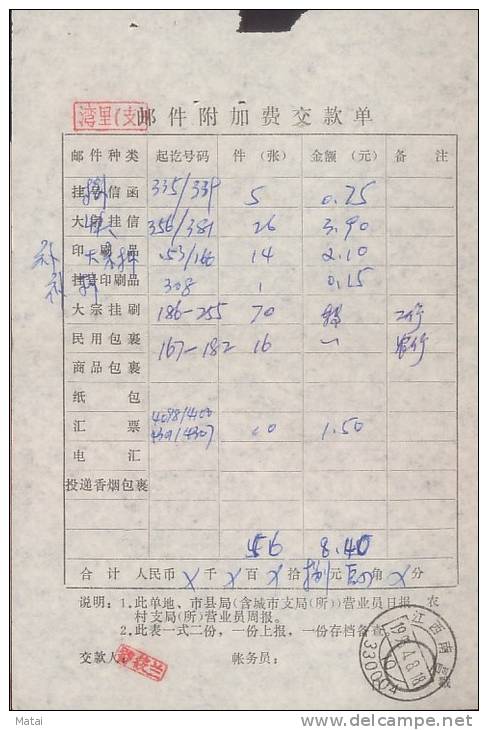 湾里(支)
邮件附加费交款单
邮件种类 起讫号码 件(张) 金额(元) 备注
挂号信函 335/339 5 0.75
大宗挂信 356/381 26 3.90
印刷品 153/166 14 2.10
挂号印刷品 308 1 0.15
大宗挂刷 186-255 70
民用包裹 167-182 16 农行
商品包裹
纸包
汇票 4098/4100 10 1.50
4301/4307
电汇
投递香烟包裹
56 8.40
合计 人民币 X 千 X 百 X 拾 捌 元 肆 角 X 分
说明:1.此单地、市县局(含城市支局(所))营业员日报,农
村支局(所)营业员周报。
2.此表一式二份,一份上报,一份存档备查。
交款人: 帐务员:
江西南昌
330004
Matai
delcampe.net